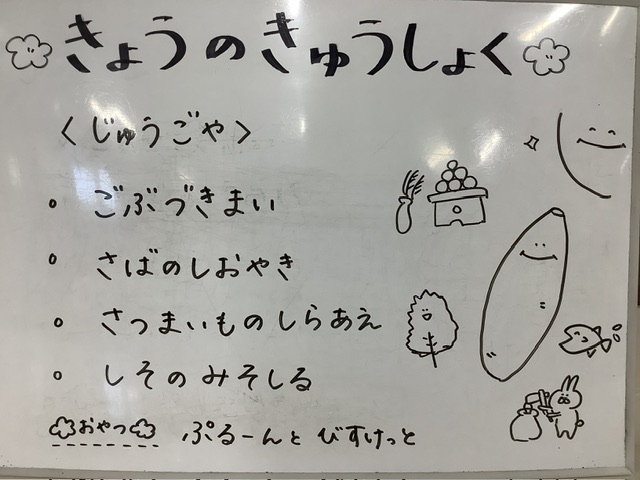 きょうのきゅうしょく
〈じゅうごや〉
。ごぶづきまい
。さばのしおやき
。さつまいものしらあえ
。しそのみそしる
おやつ ぷるーんと びすけっと